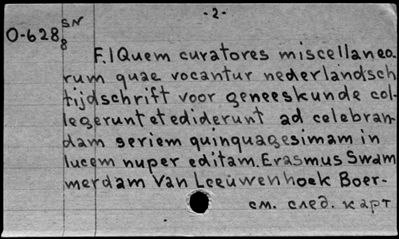 -2-
SN
O-628
8
F. IQuem curatores miscellaneo-
rum quae vocantur nederlandsch
tijdschrift voor geneeskunde col-
legerunt et ediderunt ad celebran-
dam seriem quinquagesimam in
lucem nuper editam. Erasmus Swam
merdam Van Leeuwenhoek Boer-
см. след. карт